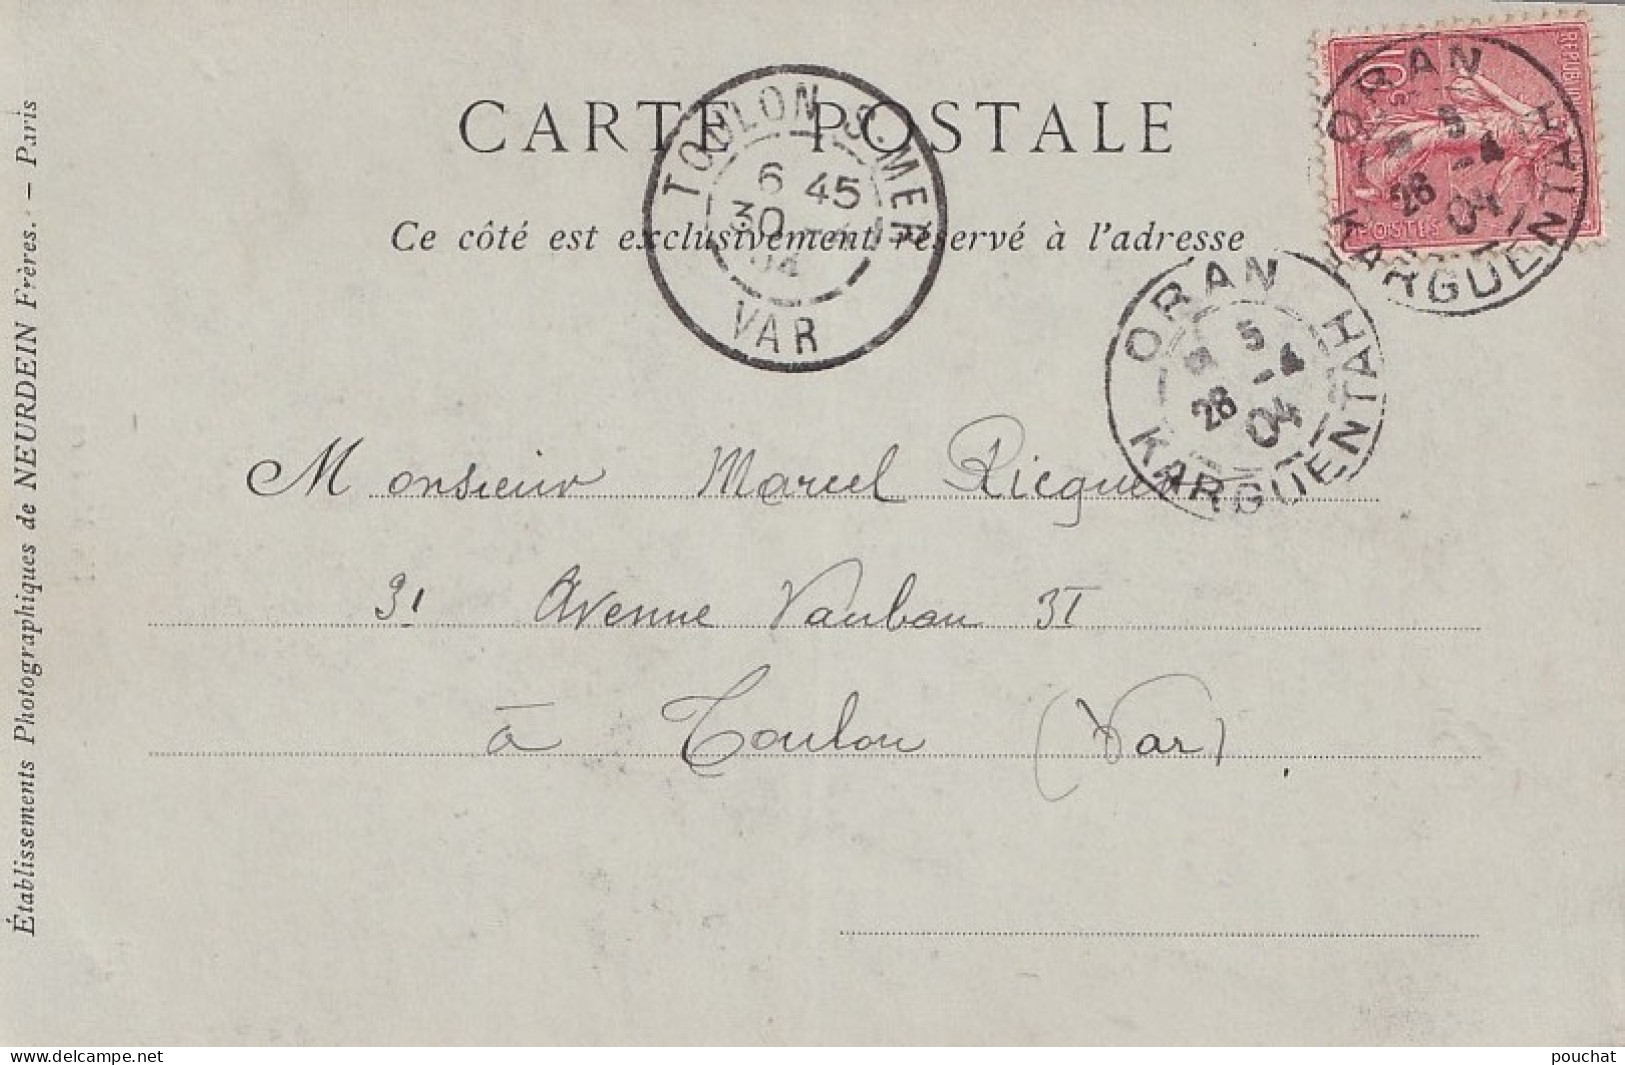 CARTE POSTALE
Ce côté est exclusivement réservé à l'adresse
TOULON S. MER
6 45
30 -4
04
VAR
REPUBLIQUE
10
POSTES
ORAN
5
28 -4
04
KARGUENTAH
ORAN
5
28 -4
04
KARGUENTAH
Monsieur Marcel Ricquer
31 Avenue Vauban 31
à Toulon (Var)
Établissements Photographiques de NEURDEIN Frères. – Paris
www.delcampe.net
pouchat